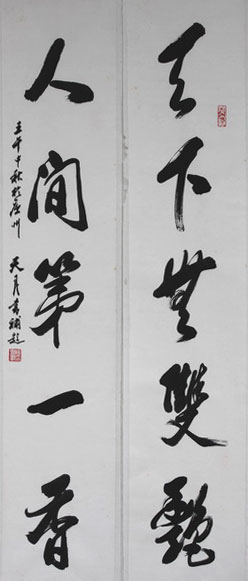 天下無雙艷
人間第一香
壬午中秋於廣州
天月書補題